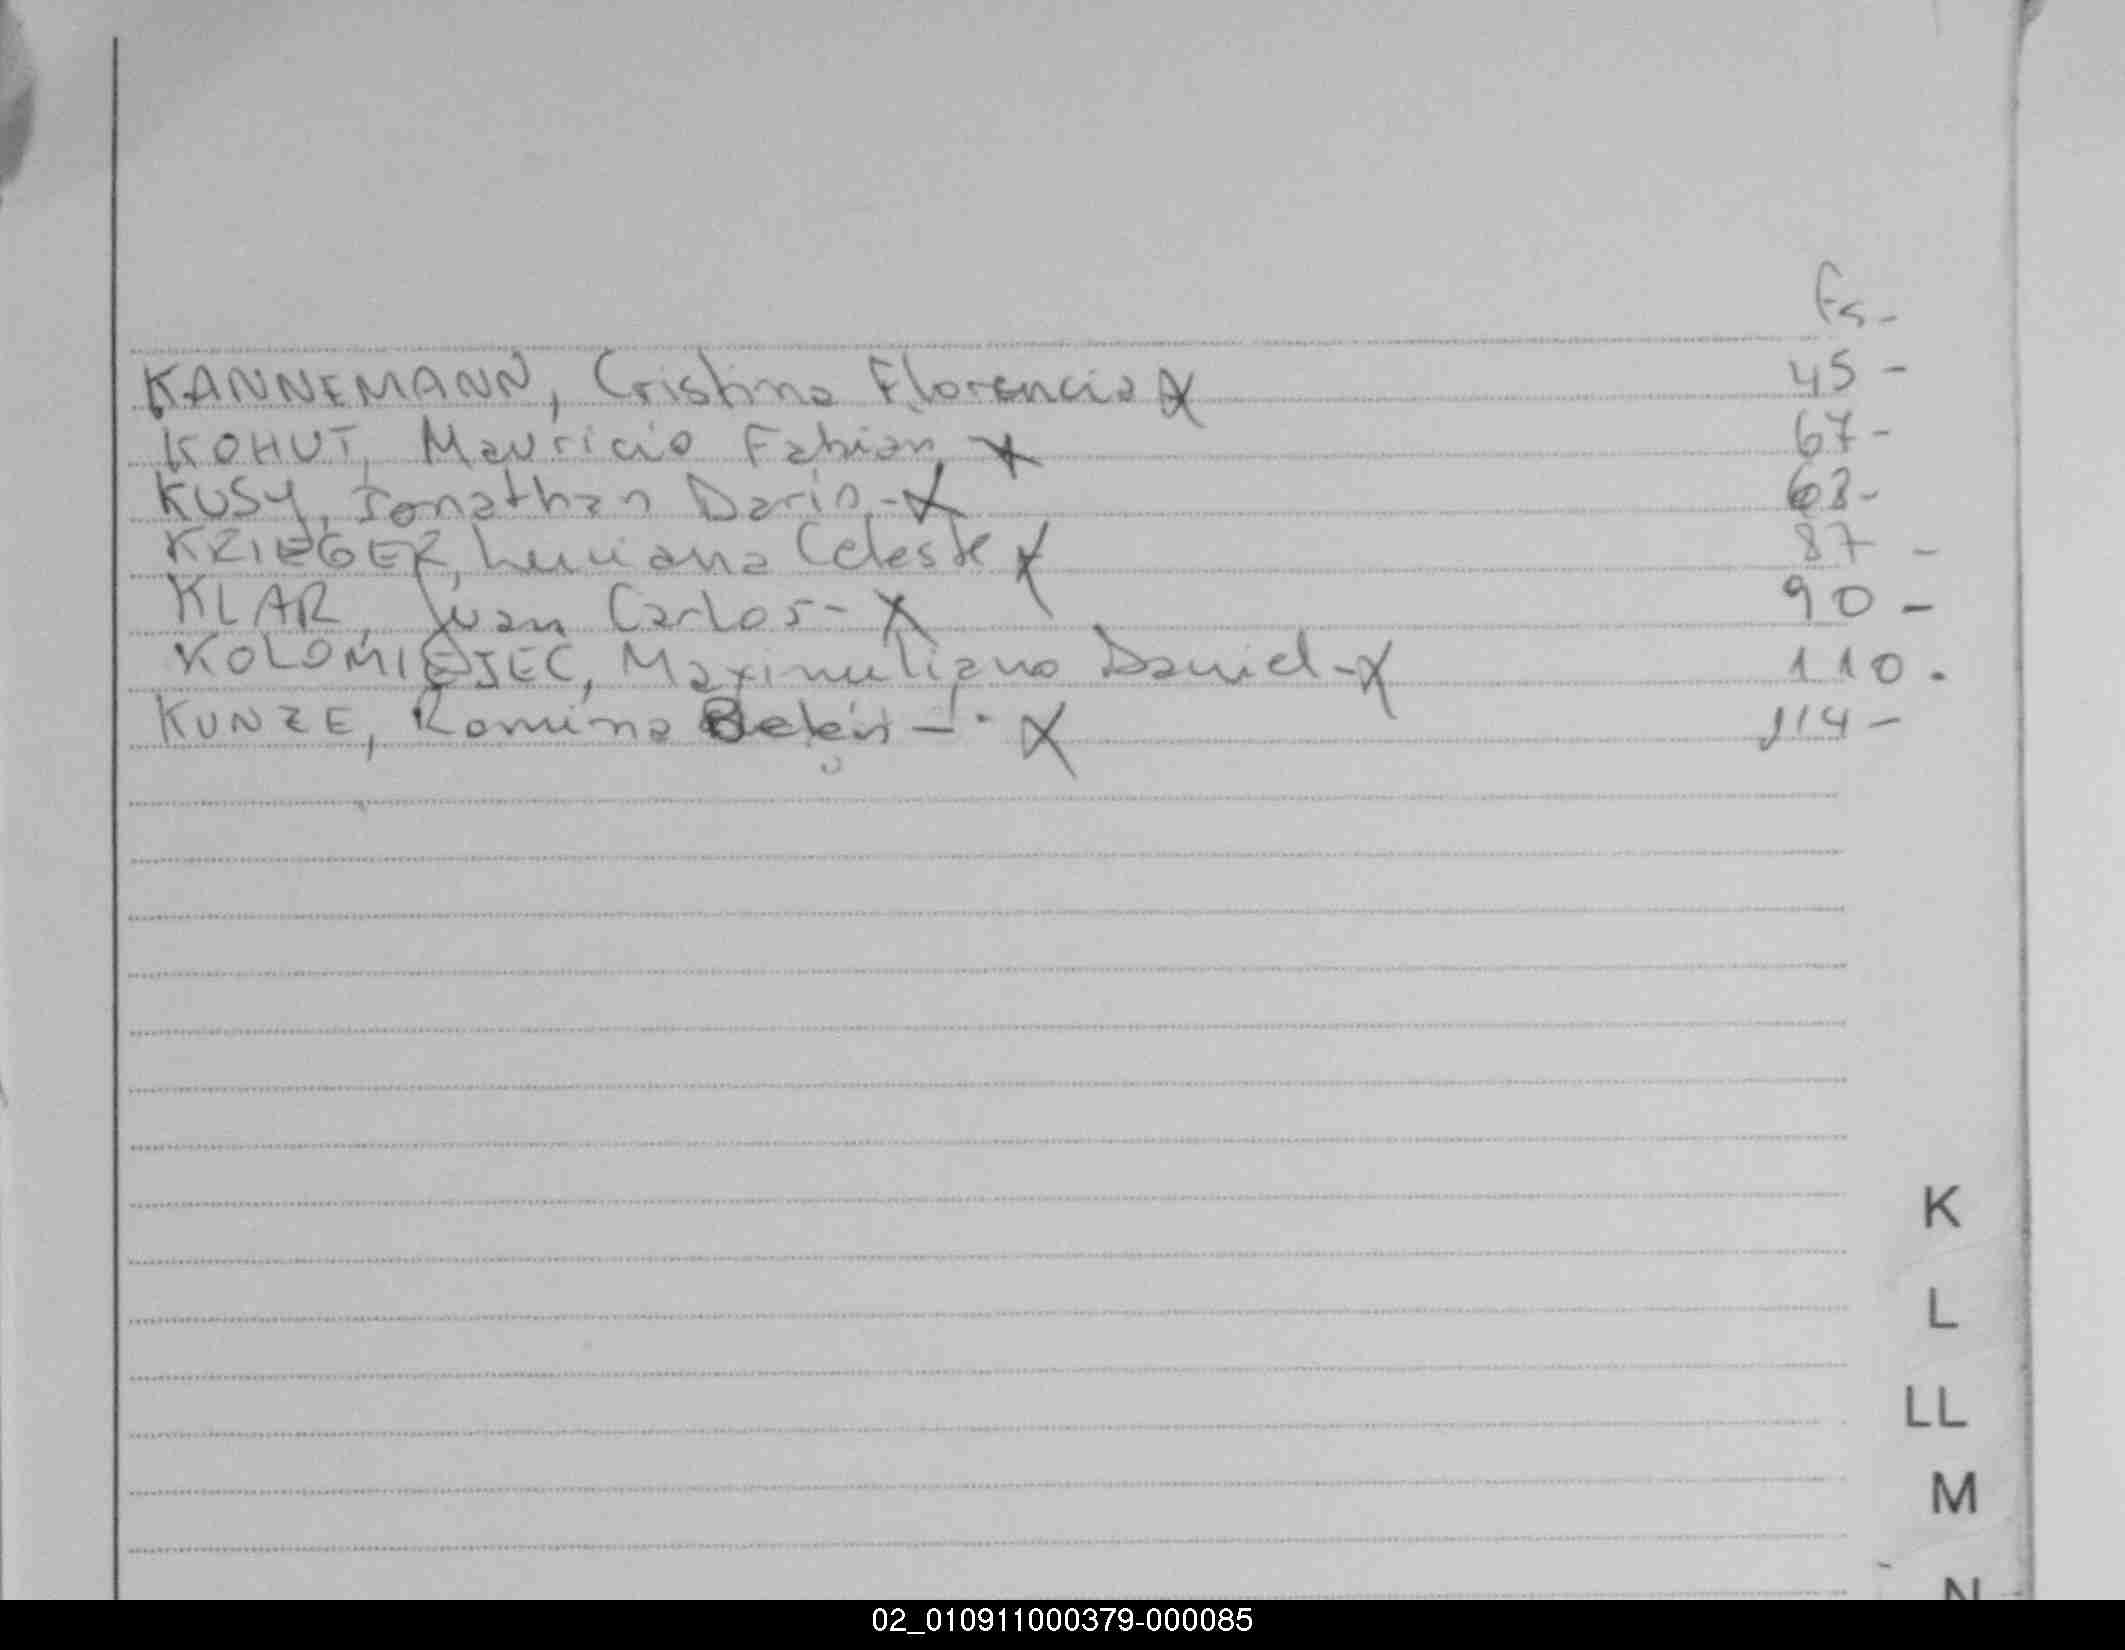 Fs-
KANNEMANN, Cristina Florencia X 45-
KOHUT, Mauricio Fabian X 67-
KUSY, Jonathan Dario-X 63-
KRIEGER, Luciana Celeste X 87-
KLAR, Juan Carlos-X 90-
KOLOMIEJEC, Maximiliano Daniel-X 110.
KUNZE, Romina Belén-X 114-
K
L
LL
M
N
02_010911000379-000085